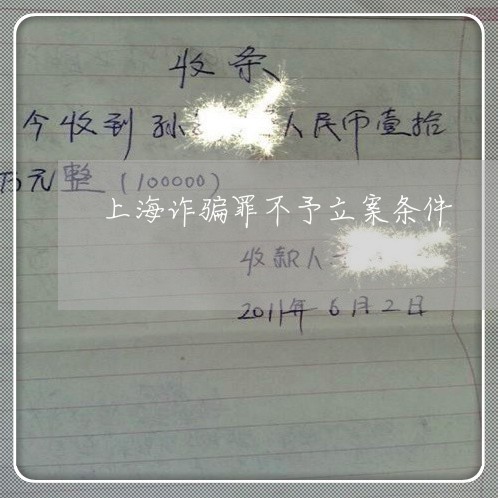 收条
今收到孙 人民币壹拾
万元整(100000)
上海诈骗罪不予立案条件
收款人
2011年6月2日